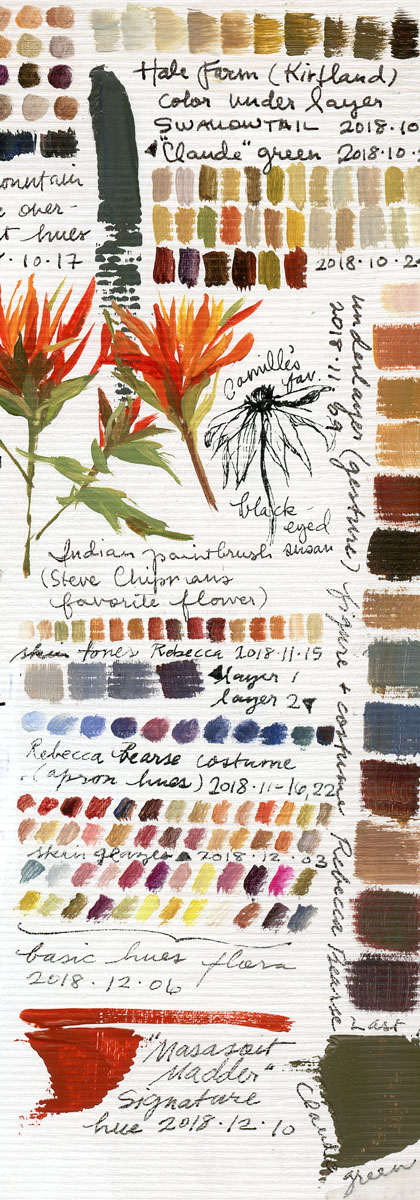 Hale Farm (Kirtland)
color under layer
SWALLOWTAIL 2018.10
"Claude" green 2018.10.
mountain
e over-
t hues
.10.17
2018.10.2
underlayer (gesture) figure + costume Rebecca Bearse
2018.11.
Camille's
fav.
black-
eyed
susan
Indian paintbrush
(Steve Chipman's
favorite flower)
skin tones Rebecca 2018.11.15
layer 1
layer 2
Rebecca Bearse costume
(apron hues) 2018.11-16,22
skin glazes 2018.12.03
basic hues flora
2018.12.06
Last
"Masasoit
Madder"
Signature
hue 2018.12.10
Claude
green